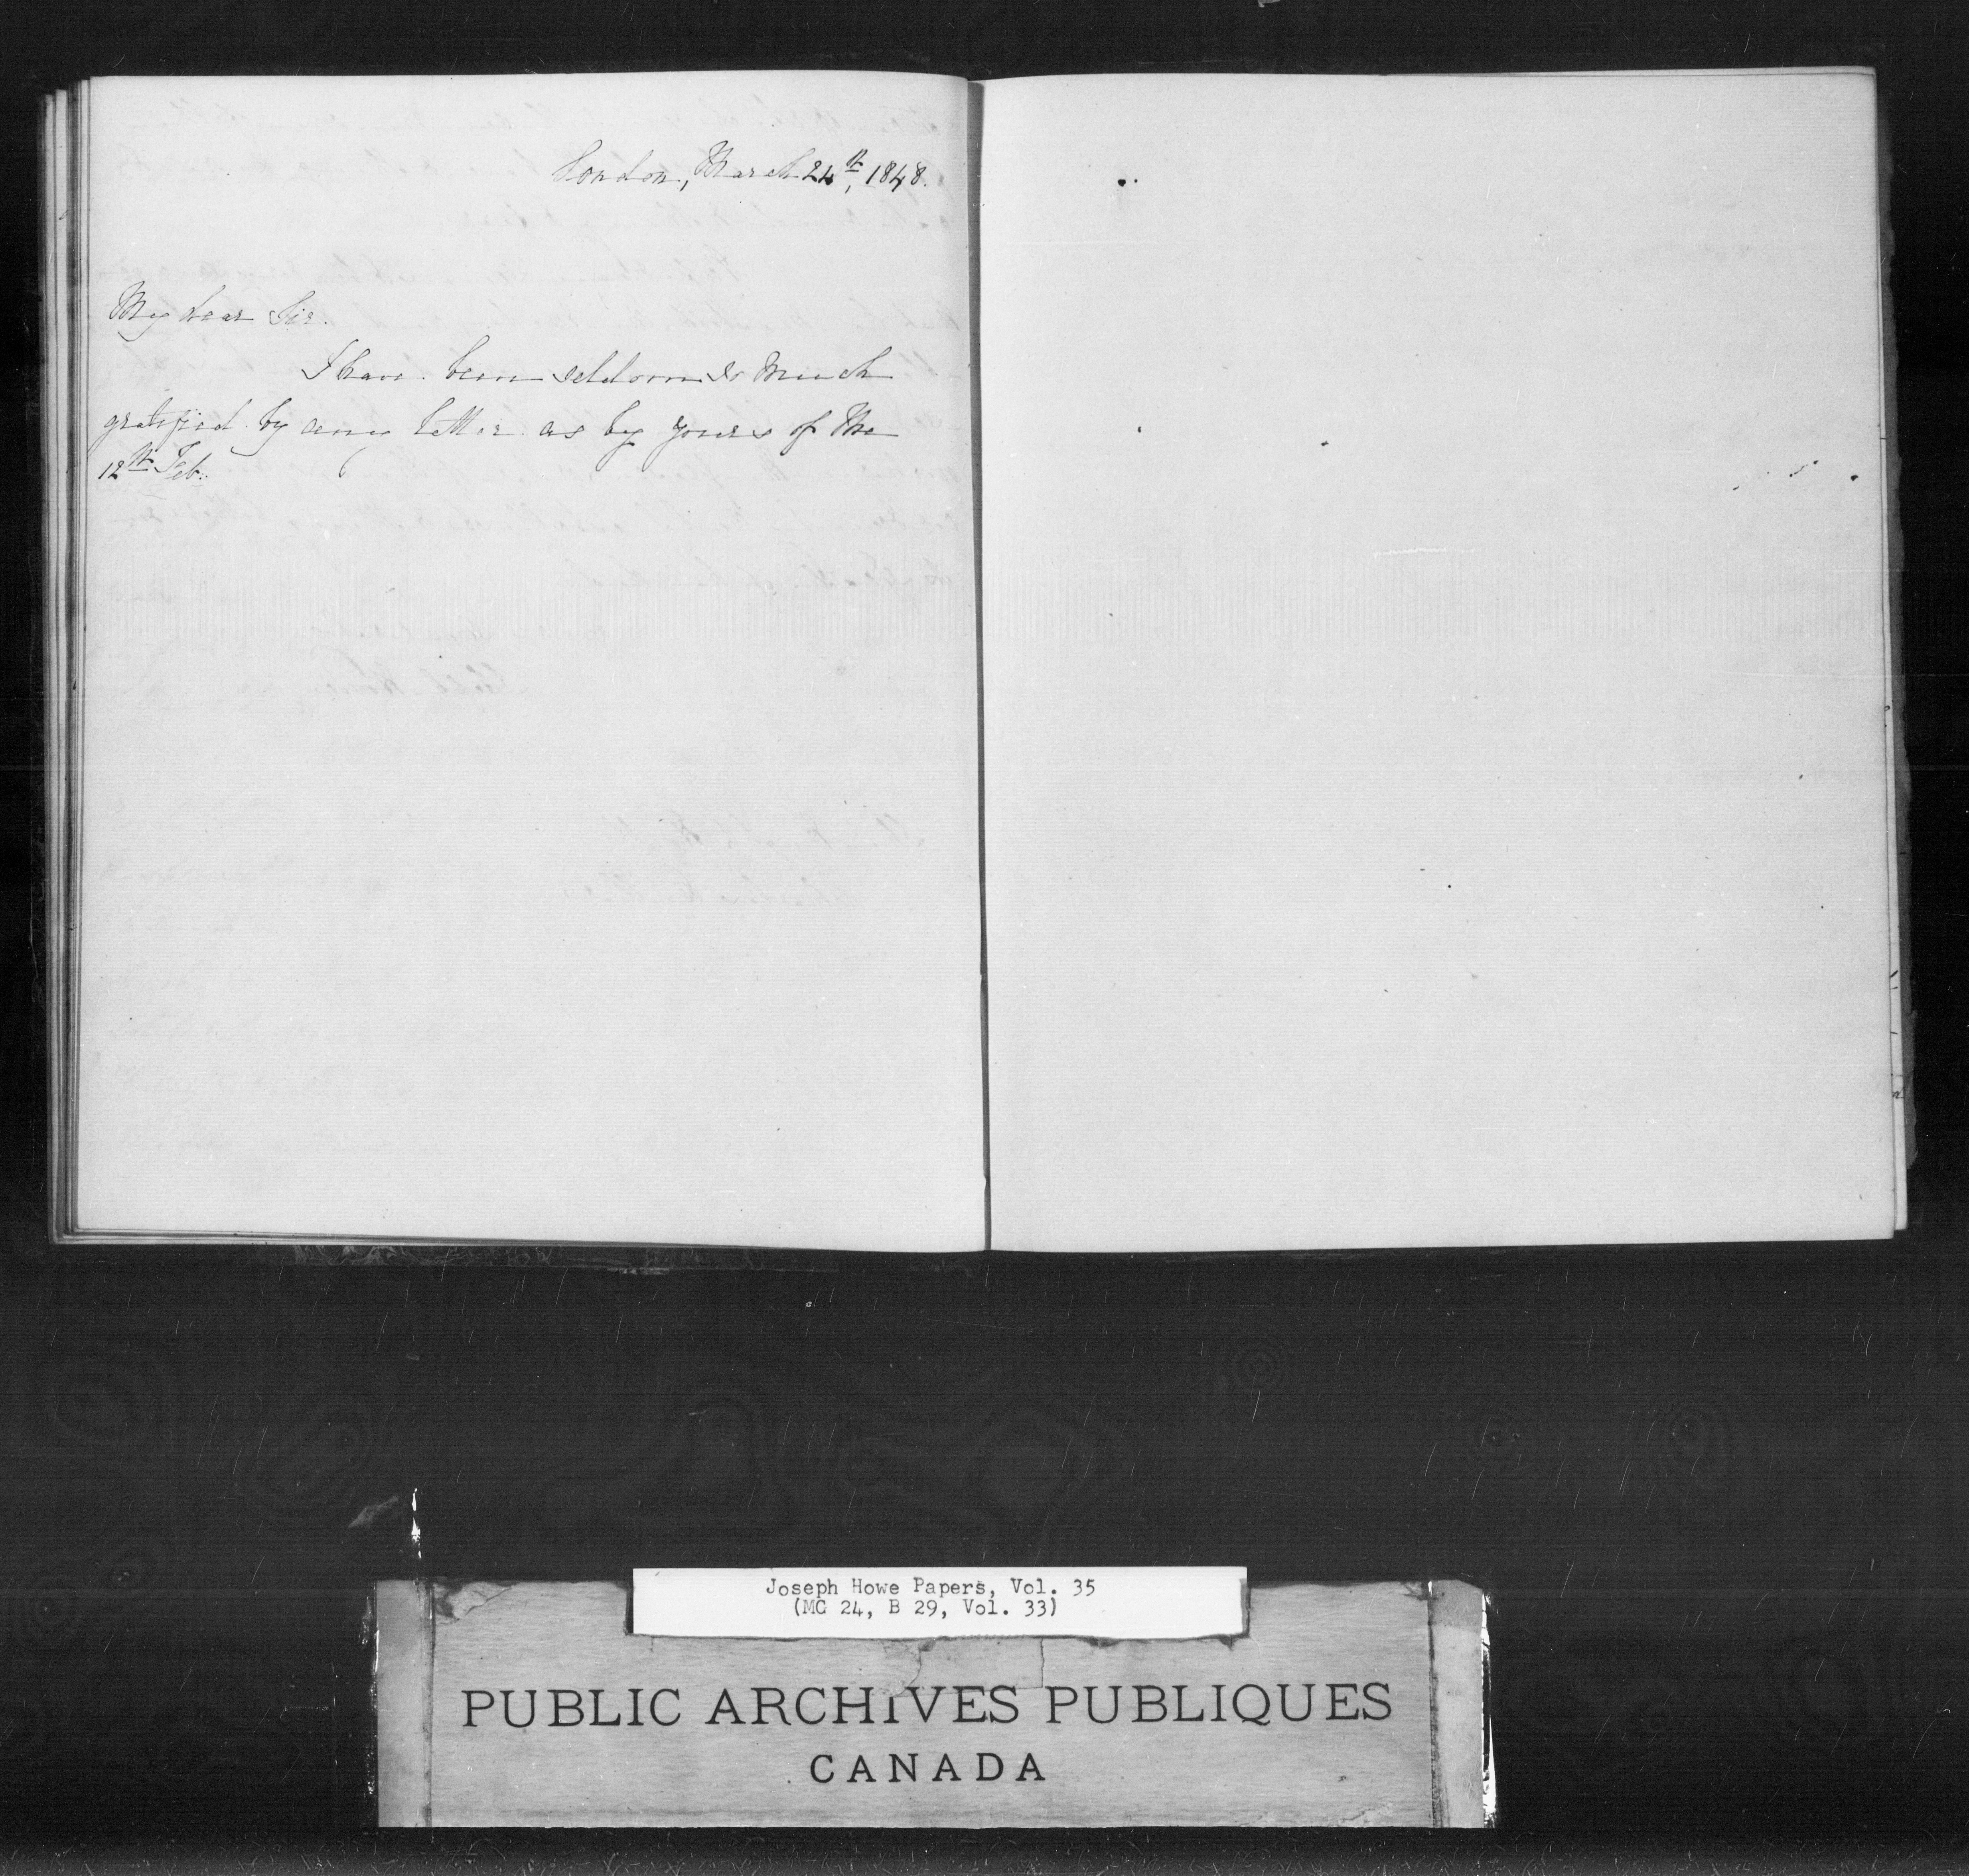 London, March 24th, 1848.
My dear Sir.
I have been seldom so much
gratified by any letter as by yours of the
12th Feb.
Joseph Howe Papers, Vol. 35
(MG 24, B 29, Vol. 33)
PUBLIC ARCHIVES PUBLIQUES
CANADA